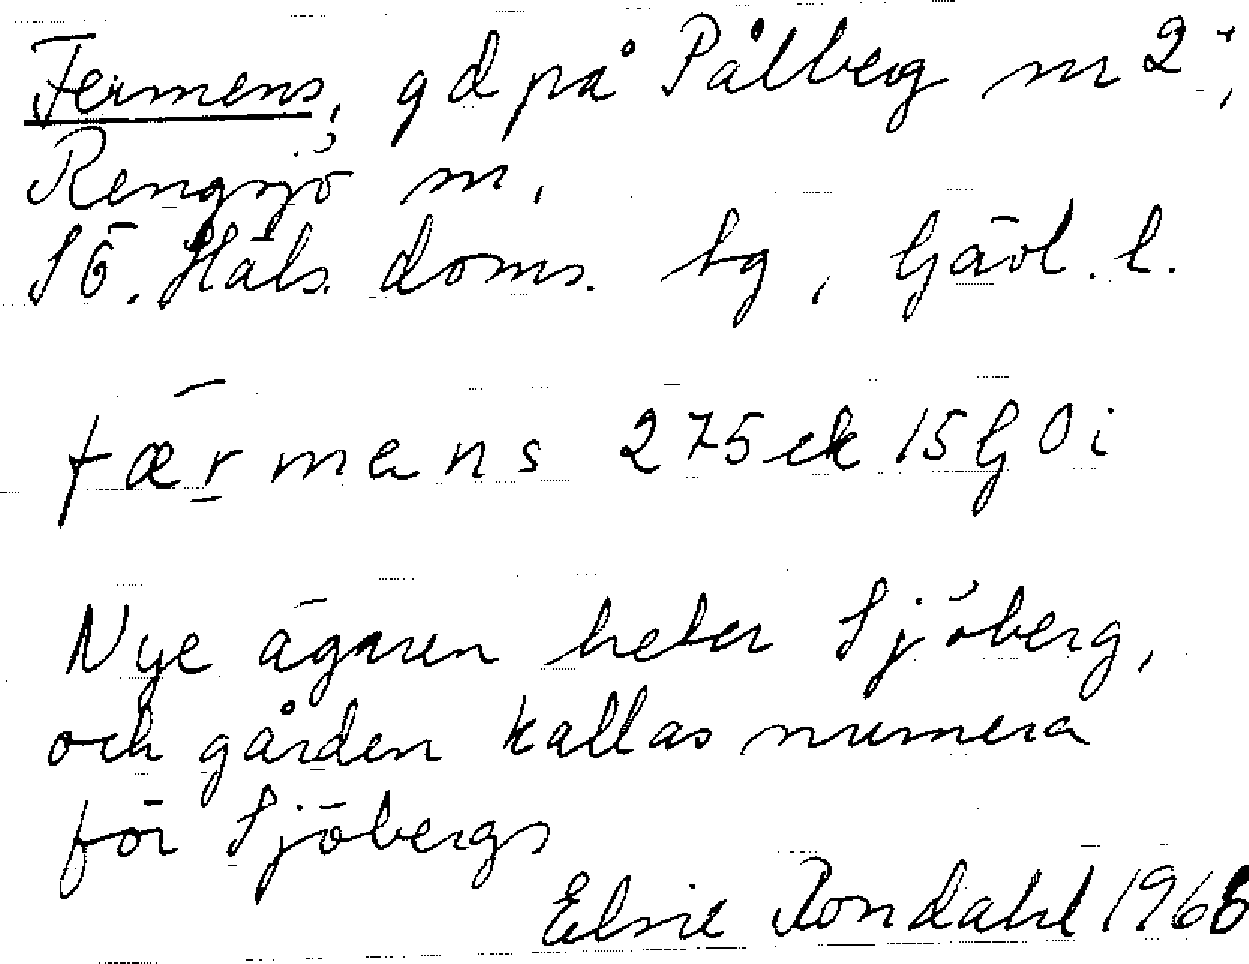 Fermens, gd på Pålberg nr 2;,
Rengsjö sn,
SÖ. Häls. doms. hg, Gävl. l.
færmens 275 ek 15G0i
Nye ägaren heter Sjöberg,
och gården kallas numera
för Sjöbergs
Elsie Rondahl 1968